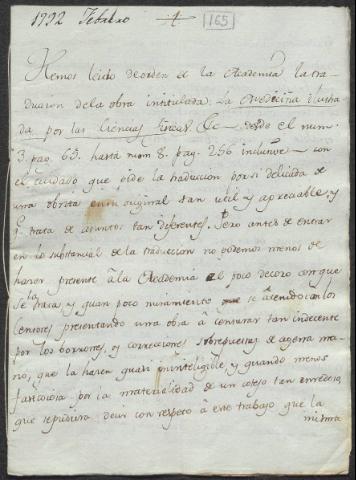 1792 Febrero 165
Hemos leido de orden de la Academia la tra-
duccion de la obra intitulada. La Medicina ilustra-
da por las Ciencias Fisicas. &c desde el num.
3. pag. 65. hasta num 8. pag. 256 inclusive con
el cuidado que pide la traduccion por si delicada de
una obrita en su original tan util y apreciable, y
q. trata de asuntos tan diferentes. Pero antes de entrar
en lo substancial de la traduccion no podemos menos de
hacer presente â la Academia el poco decoro con que
se la trata y quan poco miramiento que se â tenido con los
Censores presentando una obra â censurar tan indecente
por los borrones, y correcciones sobrepuestas de agena ma-
no, que la hacen quasi ininteligible, y quando menos
fastidiosa por la materialidad de un cotejo tan enredoso
que se pudiera decir con respeto â este trabajo que la
misma